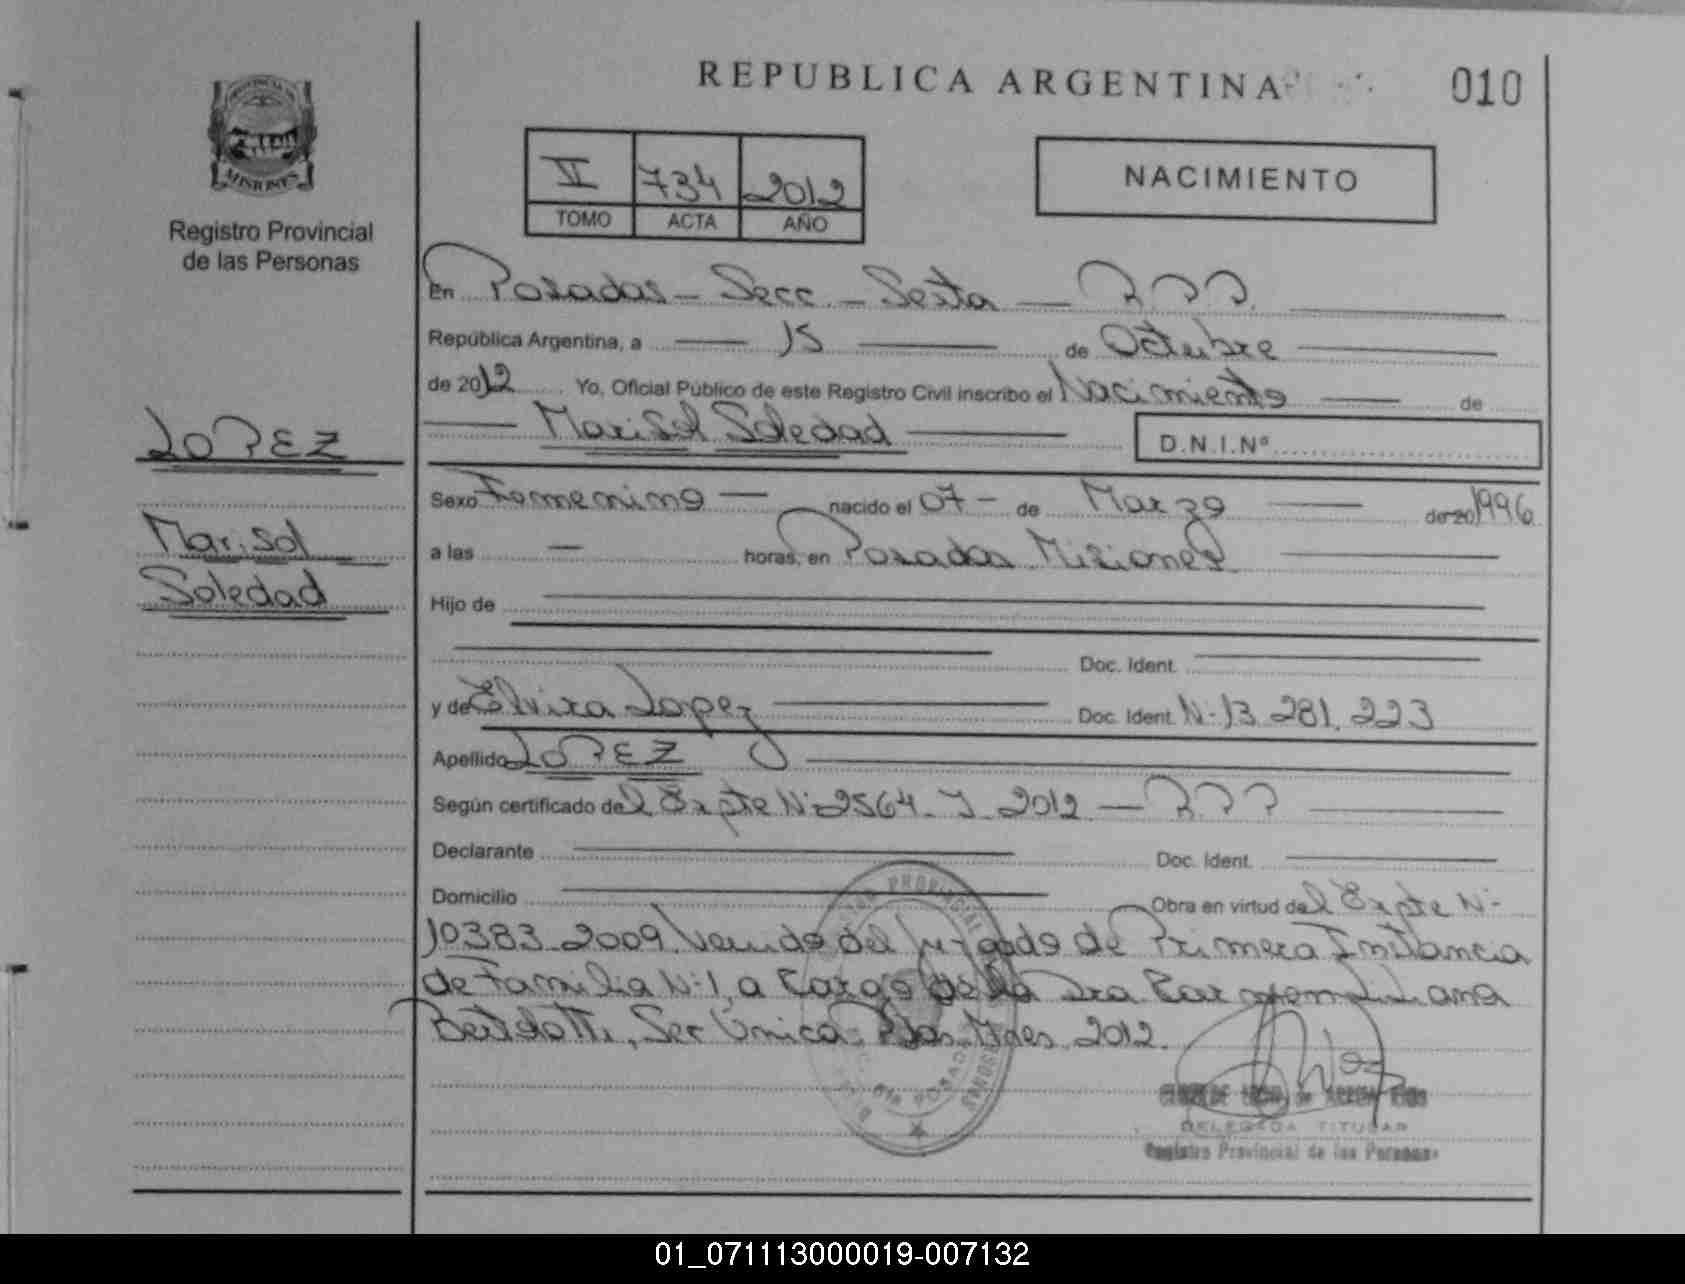 REPUBLICA ARGENTINA
010
PROVINCIA DE
MISIONES
Registro Provincial
de las Personas
VI 734 2012
TOMO ACTA AÑO
NACIMIENTO
En Posadas - Secc - Sexta - R P P.
República Argentina, a 15 de Octubre
de 2012 Yo, Oficial Público de este Registro Civil inscribo el Nacimiento de
MariSol Soledad
D.N.I.Nº
LOPEZ
Marisol
Soledad
Sexo Femenino - nacido el 07 - de Marzo de 20 1996
a las - horas, en Posadas Misiones
Hijo de
Doc. Ident.
y de Elvira Lopez Doc. Ident. N- 13.281.223
Apellido LOPEZ
Según certificado del Expte N- 2564 - J - 2012 - R P P
Declarante Doc. Ident.
Domicilio Obra en virtud del Expte N-
10383-2009 Venido del Juzgado de Primera Instancia
de Familia N-1, a Cargo de la Dra Carmen
Sec Única. Pdas. Mnes. 2012.
DELEGADA TITULAR
Registro Provincial de las Personas
01_071113000019-007132